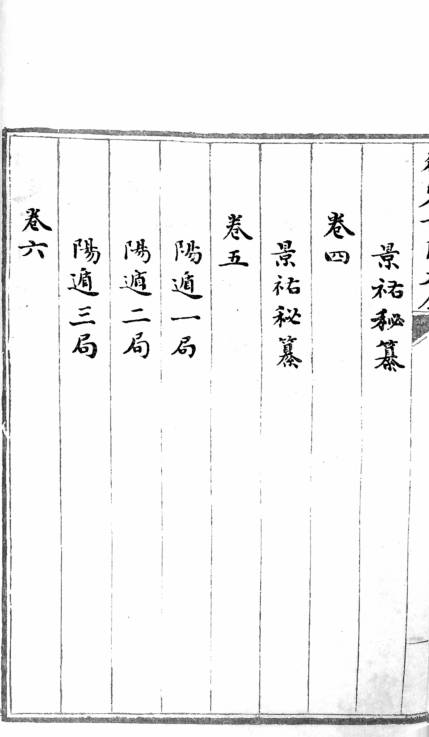 景祐秘纂
卷四
景祐秘纂
卷五
陽遁一局
陽遁二局
陽遁三局
卷六